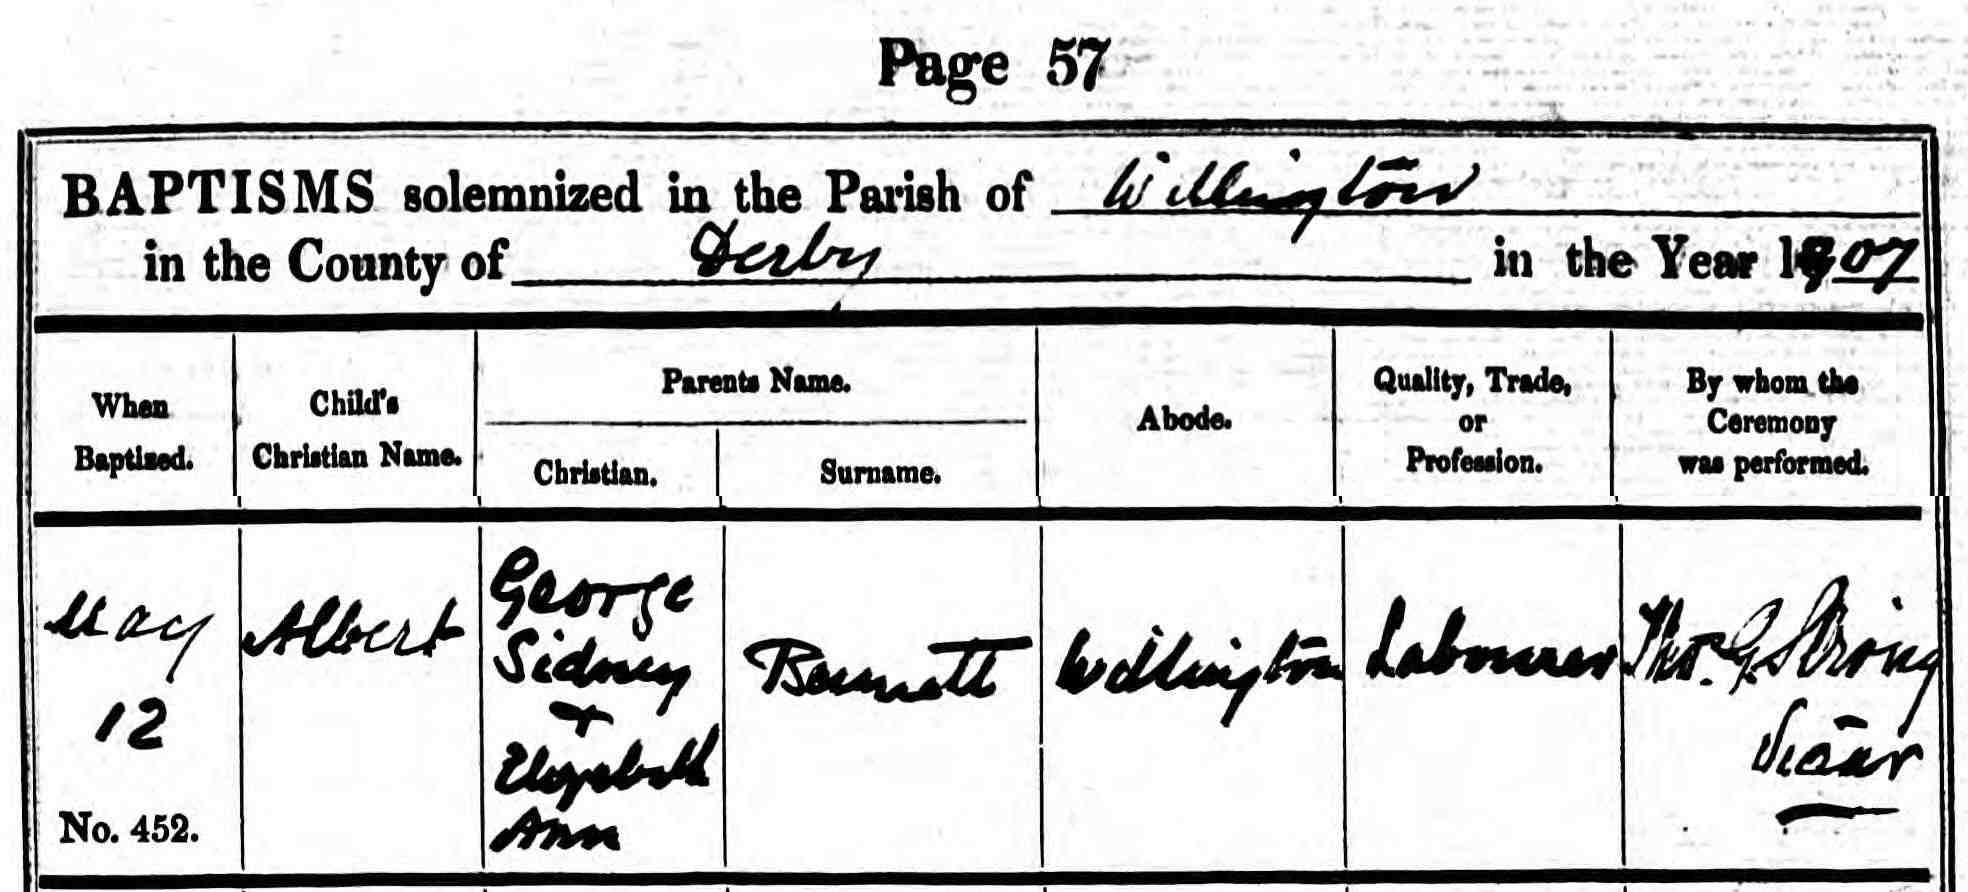 Page 57
BAPTISMS solemnized in the Parish of Willington
in the County of Derby in the Year 1907
When Baptized.
Child's Christian Name.
Parents Name.
Christian.
Surname.
Abode.
Quality, Trade, or Profession.
By whom the Ceremony was performed.
May
12
No. 452.
Albert
George
Sidney
+
Elizabeth
Ann
Bennett
Willington
Labourer
Thos. G. Strong
Vicar